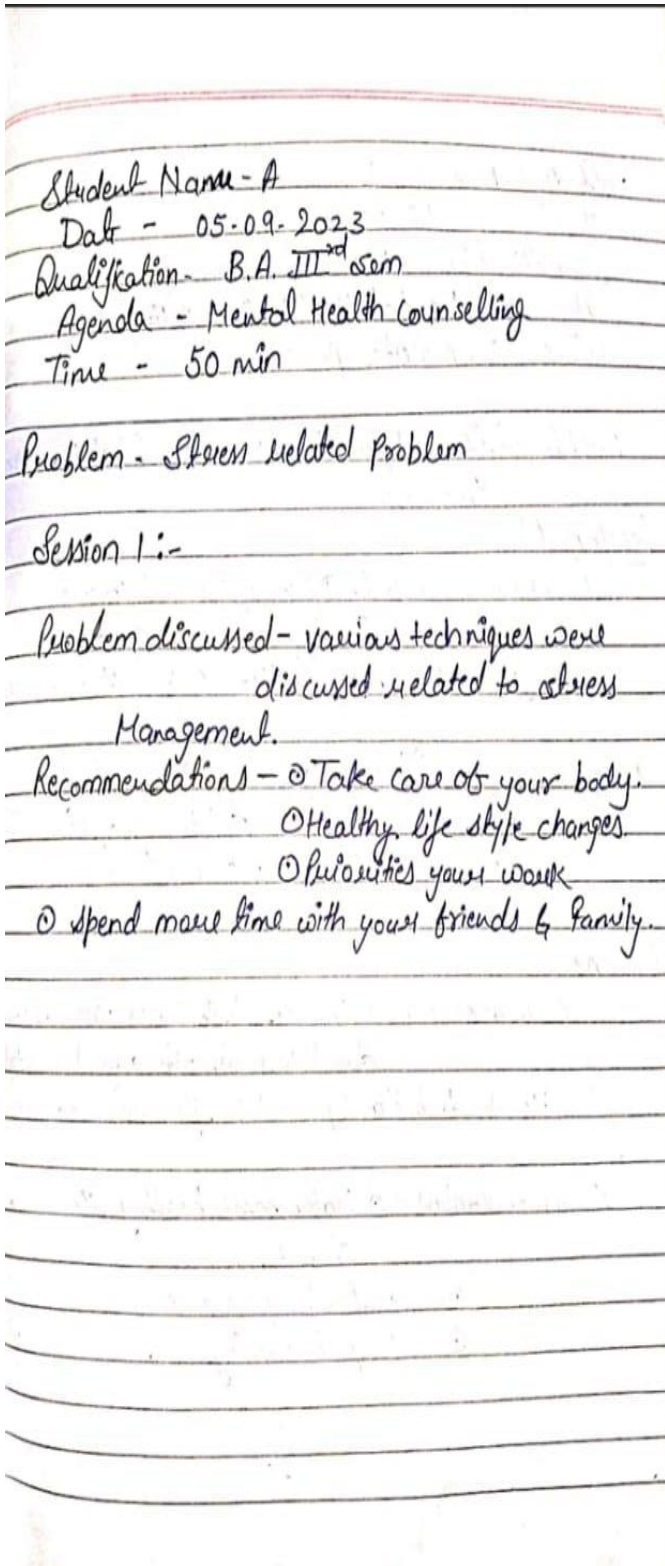 Student Name - A
Date - 05-09-2023
Qualification - B.A. IIIrd sem
Agenda - Mental Health Counselling
Time - 50 min
Problem - Stress related Problem
Session 1 :-
Problem discussed - various techniques were
discussed related to stress
Management.
Recommendations - ⊙ Take care of your body.
⊙ Healthy life style changes
⊙ Priorities your work
⊙ spend more time with your friends & family.